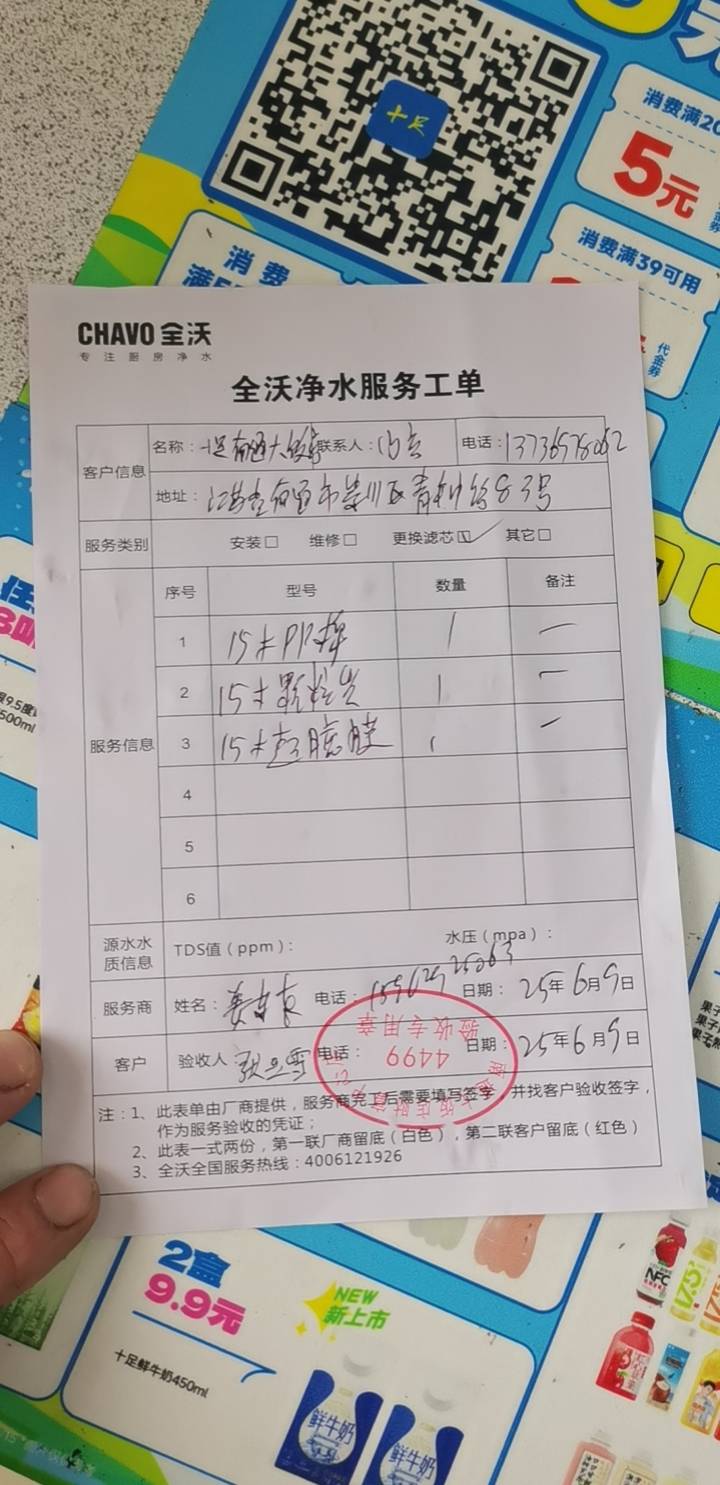 十足
消费满20
5元
消费满39可用
代金券
消费
CHAVO 全沃
专注厨房净水
全沃净水服务工单
客户信息
名称：十足南通大饭店 联系人： 电话：13736578062
地址：江苏省南通市崇川区青年中路83号
服务类别 安装□ 维修□ 更换滤芯☑ 其它□
服务信息
序号 型号 数量 备注
1 15寸PP棉 1 一
2 15寸颗粒炭 1 一
3 15寸超滤膜 1 一
4
5
6
源水水质信息 TDS值（ppm）： 水压（mpa）：
服务商 姓名： 电话： 日期：25年6月9日
客户 验收人 电话： 日期：25年6月9日
验收专用章
4499
注：1、此表单由厂商提供，服务商完工后需要填写签字，并找客户验收签字，
作为服务验收的凭证；
2、此表一式两份，第一联厂商留底（白色），第二联客户留底（红色）
3、全沃全国服务热线：4006121926
2盒
9.9元
NEW
新上市
十足鲜牛奶450ml
鲜牛奶
鲜牛奶
NFC
500ml